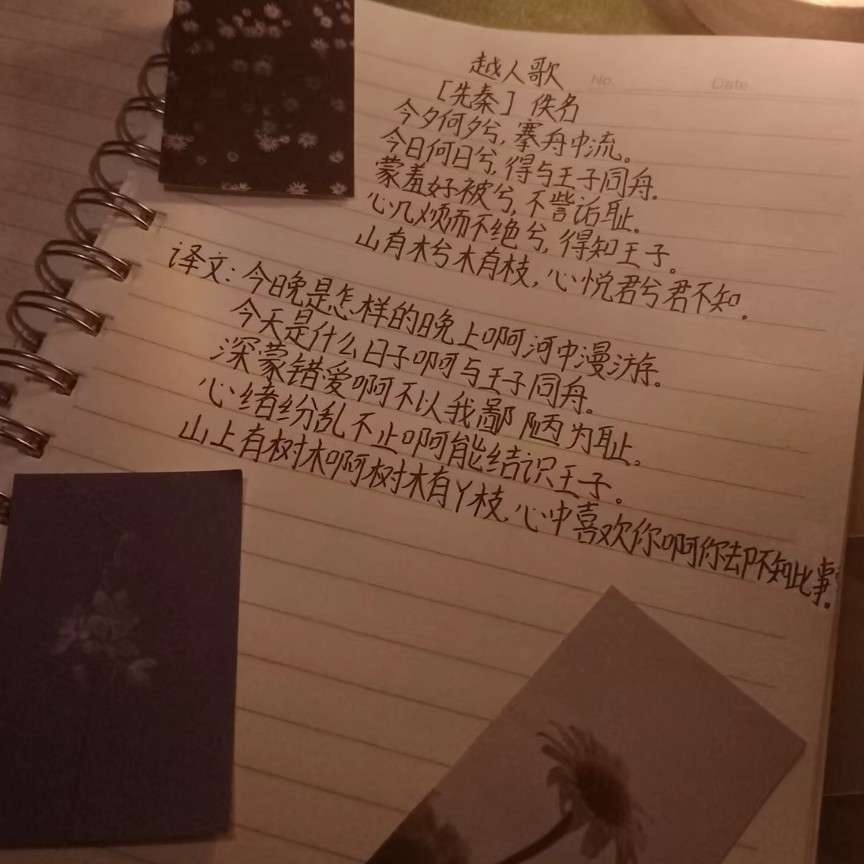 No.
Date
越人歌
[先秦] 佚名
今夕何夕兮,搴舟中流。
今日何日兮,得与王子同舟。
蒙羞好被兮,不訾诟耻。
心几烦而不绝兮,得知王子。
山有木兮木有枝,心悦君兮君不知。
译文:今晚是怎样的晚上啊河中漫游。
今天是什么日子啊与王子同舟。
深蒙错爱啊不以我鄙陋为耻。
心绪纷乱不止啊能结识王子。
山上有树木啊树木有丫枝,心中喜欢你啊你却不知此事。